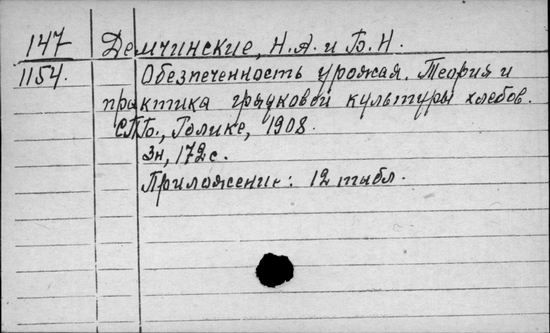 147 Демчинские, Н.А. и Б.Н.
1154. Обезпеченность урожая. Теория и
практика грядковой культуры хлебов.
СПБ., Голике, 1908.
3н, 172 с.
Приложение: 12 табл.